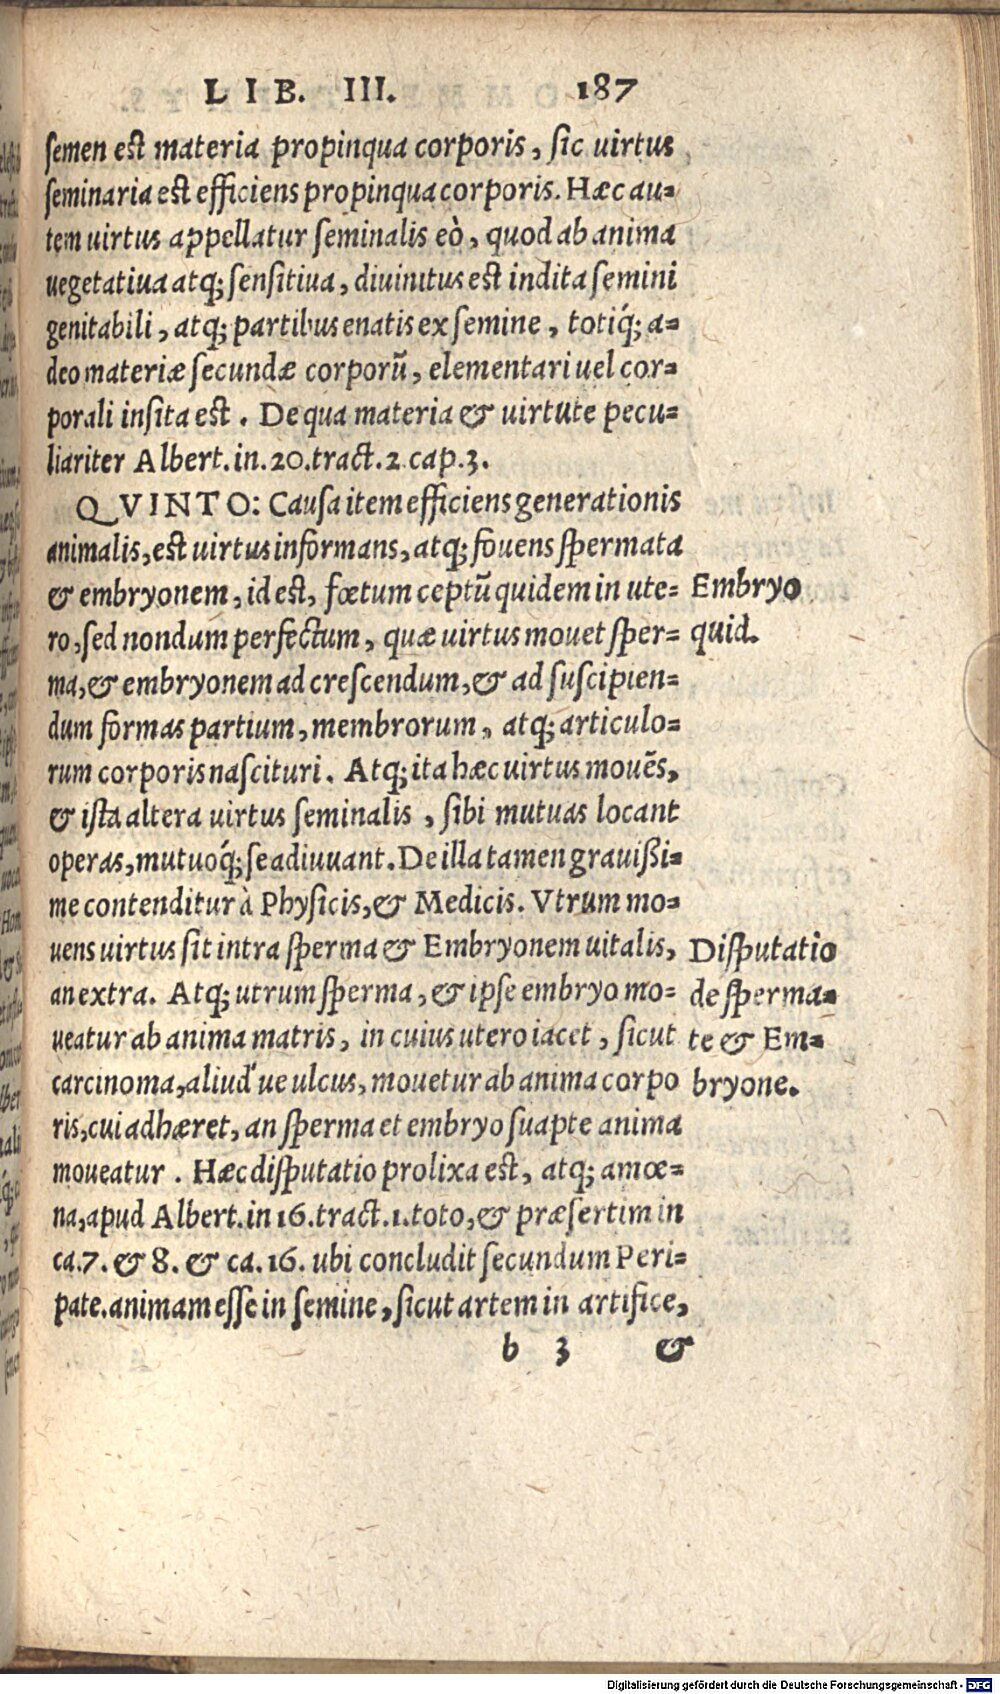 LIB. III. 187
semen est materia propinqua corporis, sic uirtus
seminaria est efficiens propinqua corporis. Hæc au-
tem uirtus appellatur seminalis eò, quod ab anima
uegetatiua atq; sensitiua, diuinitus est indita semini
genitabili, atq; partibus enatis ex semine, totiq́; a-
deo materiæ secundæ corporũ, elementari uel cor-
porali insita est. De qua materia & uirtute pecu-
liariter Albert. in. 20. tract. 2. cap. 3.
QVINTO: Causa item efficiens generationis
animalis, est uirtus informans, atq; fouens spermata
& embryonem, id est, fœtum ceptũ quidem in ute-
Embryo
ro, sed nondum perfectum, quæ uirtus mouet sper-
quid.
ma, & embryonem ad crescendum, & ad suscipien-
dum formas partium, membrorum, atq; articulo-
rum corporis nascituri. Atq; ita hæc uirtus mouẽs,
& ista altera uirtus seminalis, sibi mutuas locant
operas, mutuoq́; se adiuuant. De illa tamen grauißi-
me contenditur à Physicis, & Medicis. Vtrum mo-
uens uirtus sit intra sperma & Embryonem uitalis,
Disputatio
an extra. Atq; utrum sperma, & ipse embryo mo-
de sperma-
ueatur ab anima matris, in cuius utero iacet, sicut
te & Em-
carcinoma, aliud' ue ulcus, mouetur ab anima corpo
bryone.
ris, cui adhæret, an sperma et embryo suapte anima
moueatur. Hæc disputatio prolixa est, atq; amœ-
na, apud Albert. in 16. tract. 1. toto, & præsertim in
ca. 7. & 8. & ca. 16. ubi concludit secundum Peri-
pate. animam esse in semine, sicut artem in artifice,
b 3 &
Digitalisierung gefördert durch die Deutsche Forschungsgemeinschaft - DFG